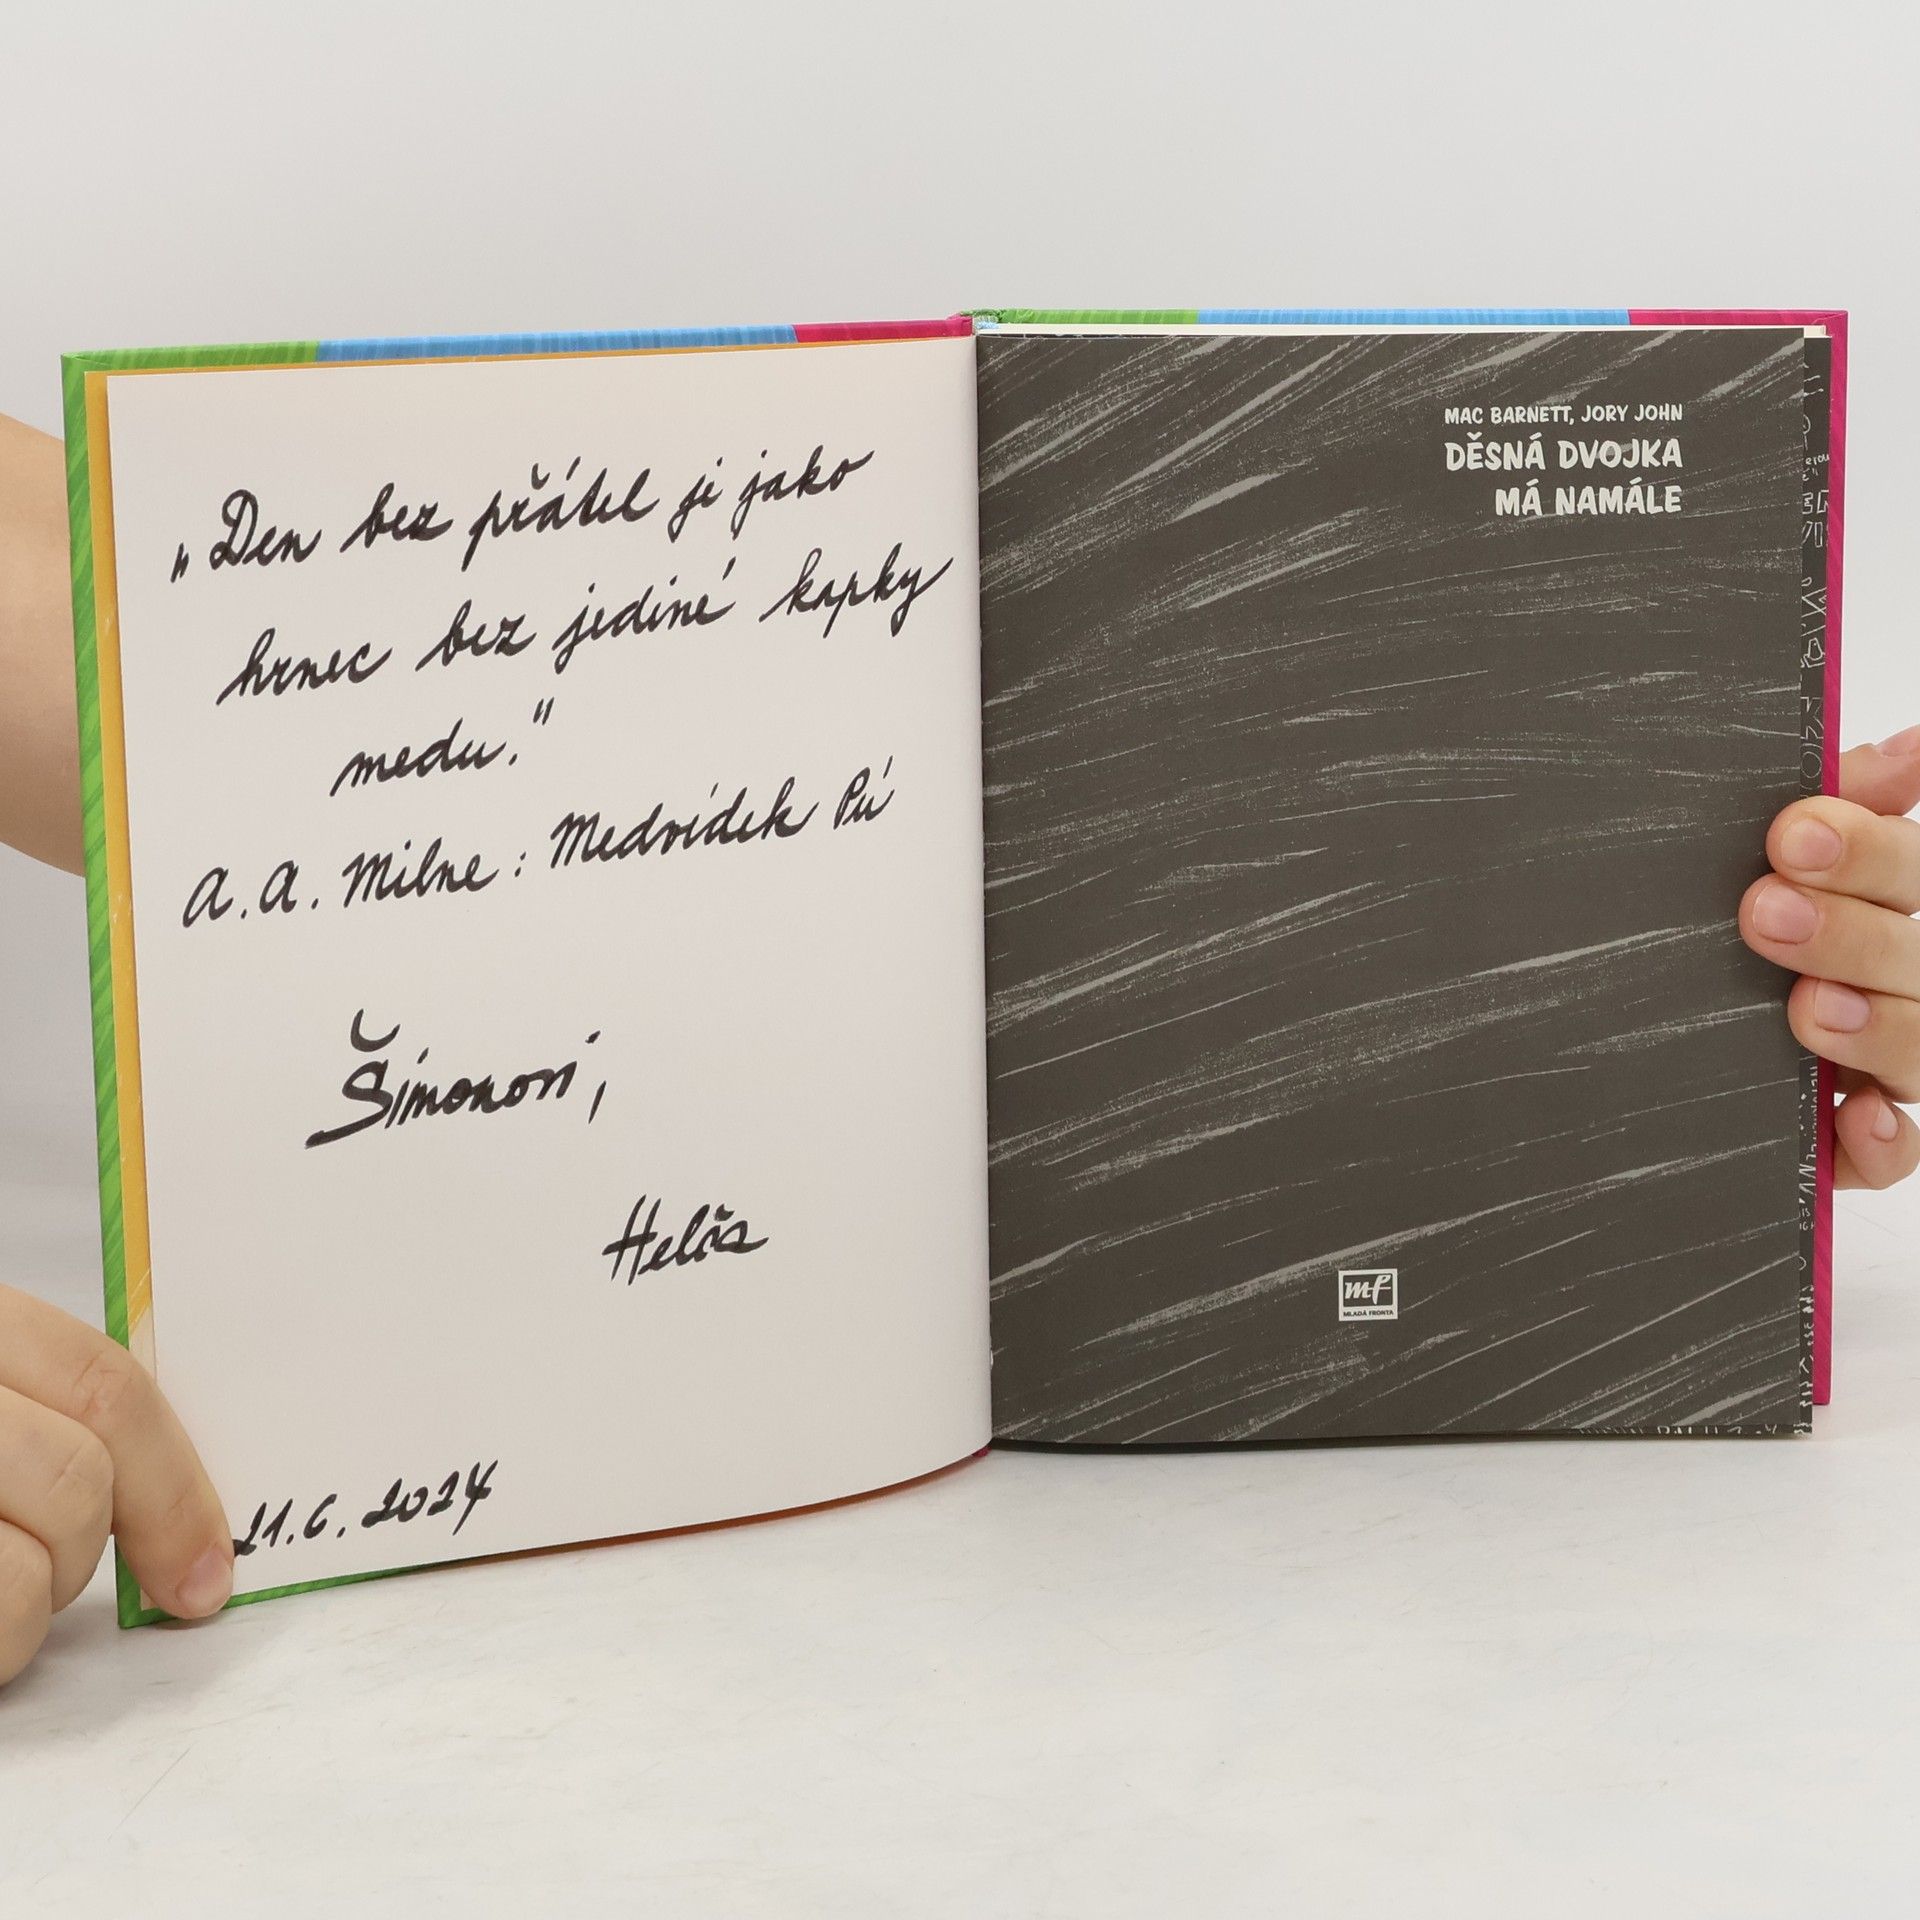 „Den bez přátel je jako
hrnec bez jediné kapky
medu."
A. A. Milne: Medvídek Pú
Šimonovi,
21.6.2024
MAC BARNETT, JORY JOHN
DĚSNÁ DVOJKA
MÁ NAMÁLE
mf
MLADÁ FRONTA